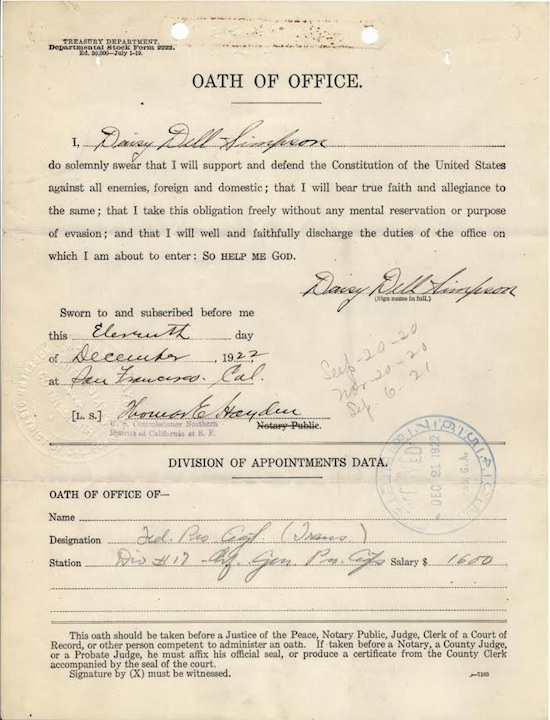 TREASURY DEPARTMENT,
Departmental Stock Form 2222.
Ed. 20,000—July 1-19.
OATH OF OFFICE.
I, Daisy Dell Simpson
do solemnly swear that I will support and defend the Constitution of the United States
against all enemies, foreign and domestic; that I will bear true faith and allegiance to
the same; that I take this obligation freely without any mental reservation or purpose
of evasion; and that I will well and faithfully discharge the duties of the office on
which I am about to enter: So HELP ME GOD.
Daisy Dell Simpson
(Sign name in full.)
Sworn to and subscribed before me
this Eleventh day
of December, 1922
at San Francisco. Cal.
Sep-20-20
Nov-20-20
6-21
[L. S.] Thomas E Hayden
U. S. Commissioner Northern
District of California at S. F.
Notary Public.
DEC 21 1922
DIVISION OF APPOINTMENTS DATA.
OATH OF OFFICE OF—
Name
Designation Fed. Pro. Agt. (Trans.)
Station Div #17 Gen. Salary $ 1600
This oath should be taken before a Justice of the Peace, Notary Public, Judge, Clerk of a Court of
Record, or other person competent to administer an oath. If taken before a Notary, a County Judge,
or a Probate Judge, he must affix his official seal, or produce a certificate from the County Clerk
accompanied by the seal of the court.
Signature by (X) must be witnessed.